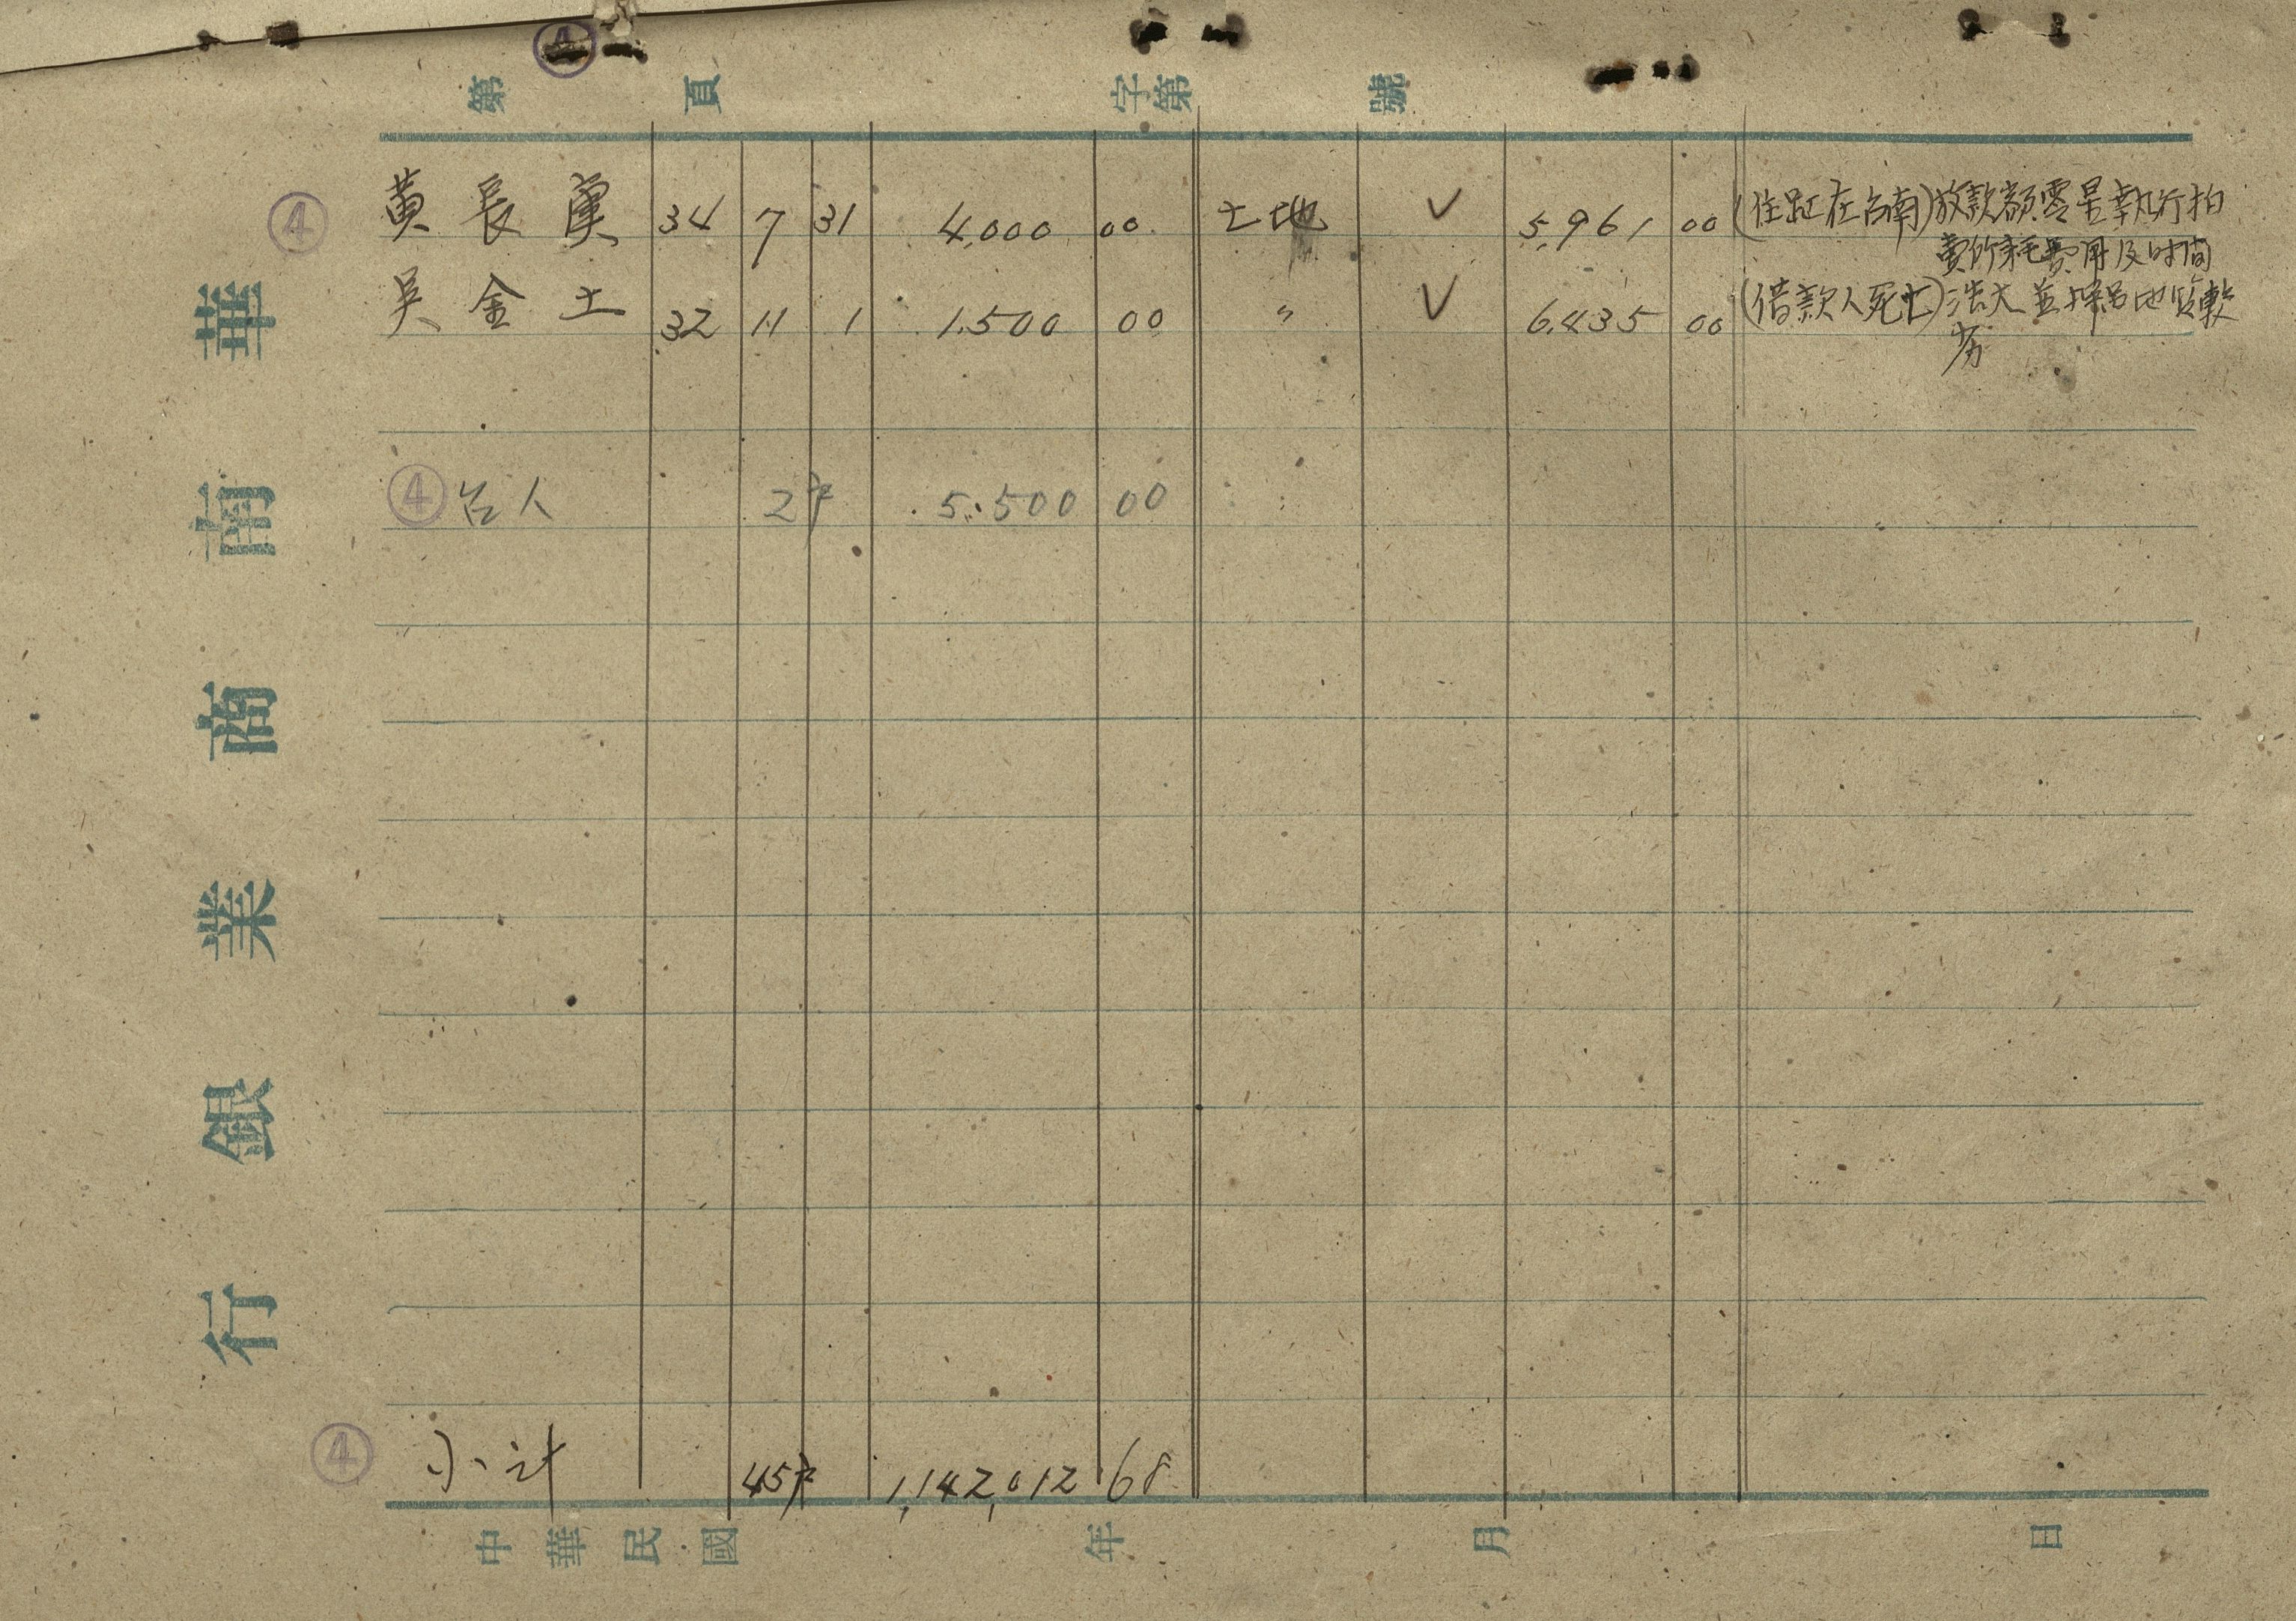 ④
第 頁 字第 號
④ 黃長庚 34 7 31 4,000 00 土地 ✓ 5,961 00 (住址在台南)放款額零星執行拍
賣所耗費用及时间
吳金土 32 11 1 1,500 00 〃 ✓ 6,435 00 (借款人死亡)浩大並擔品地質較
劣
④ 台人 2戶 5,500 00
④ 小計 45戶 1,142,012 68
華南商業銀行
中華民國 年 月 日